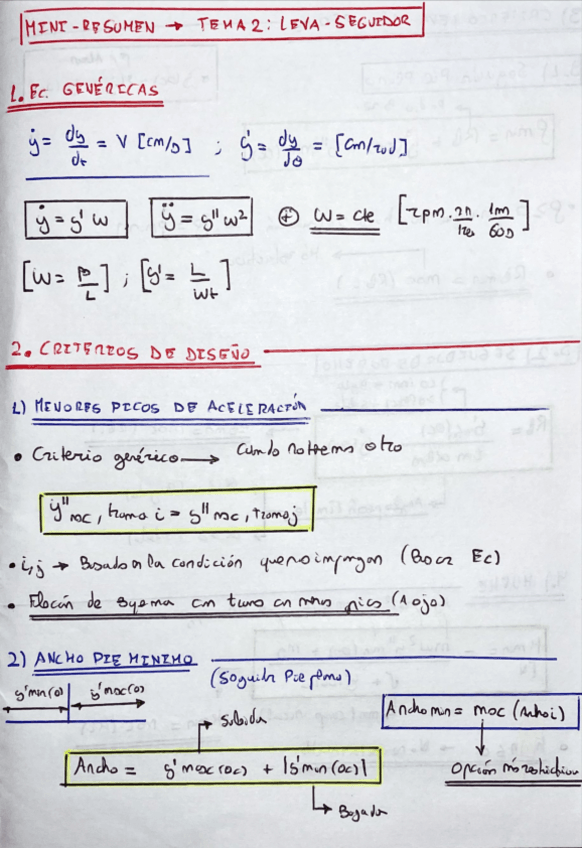 MINI-RESUMEN → TEMA 2: LEVA-SEGUIDOR
1. EC. GENÉRICAS
ẏ = dy/dt = V [cm/s] ; y' = dy/dθ = [cm/rad]
ẏ = y' w ÿ = y'' w² ⊕ w = cte [rpm · 2π/1rev · 1m/60s]
[w = β/L] ; [y' = L/wt]
2. CRITERIOS DE DISEÑO
1) MENORES PICOS DE ACELERACIÓN
• Criterio genérico → Cuando no tenemos otro
y'' max, tramo i = y'' max, tramo j
• i, j → Basado en la condición que nos impongan (Buscar Ec)
• Elección de sistema con tramo con menos picos (A ojo)
2) ANCHO PIE MINIMO (Seguidor Pie plano)
y'min(α) y'max(α)
Subida
Ancho min = max (Ancho i)
Ancho = y' max(α) + |y'min(α)|
Opción más restrictiva
Bajada